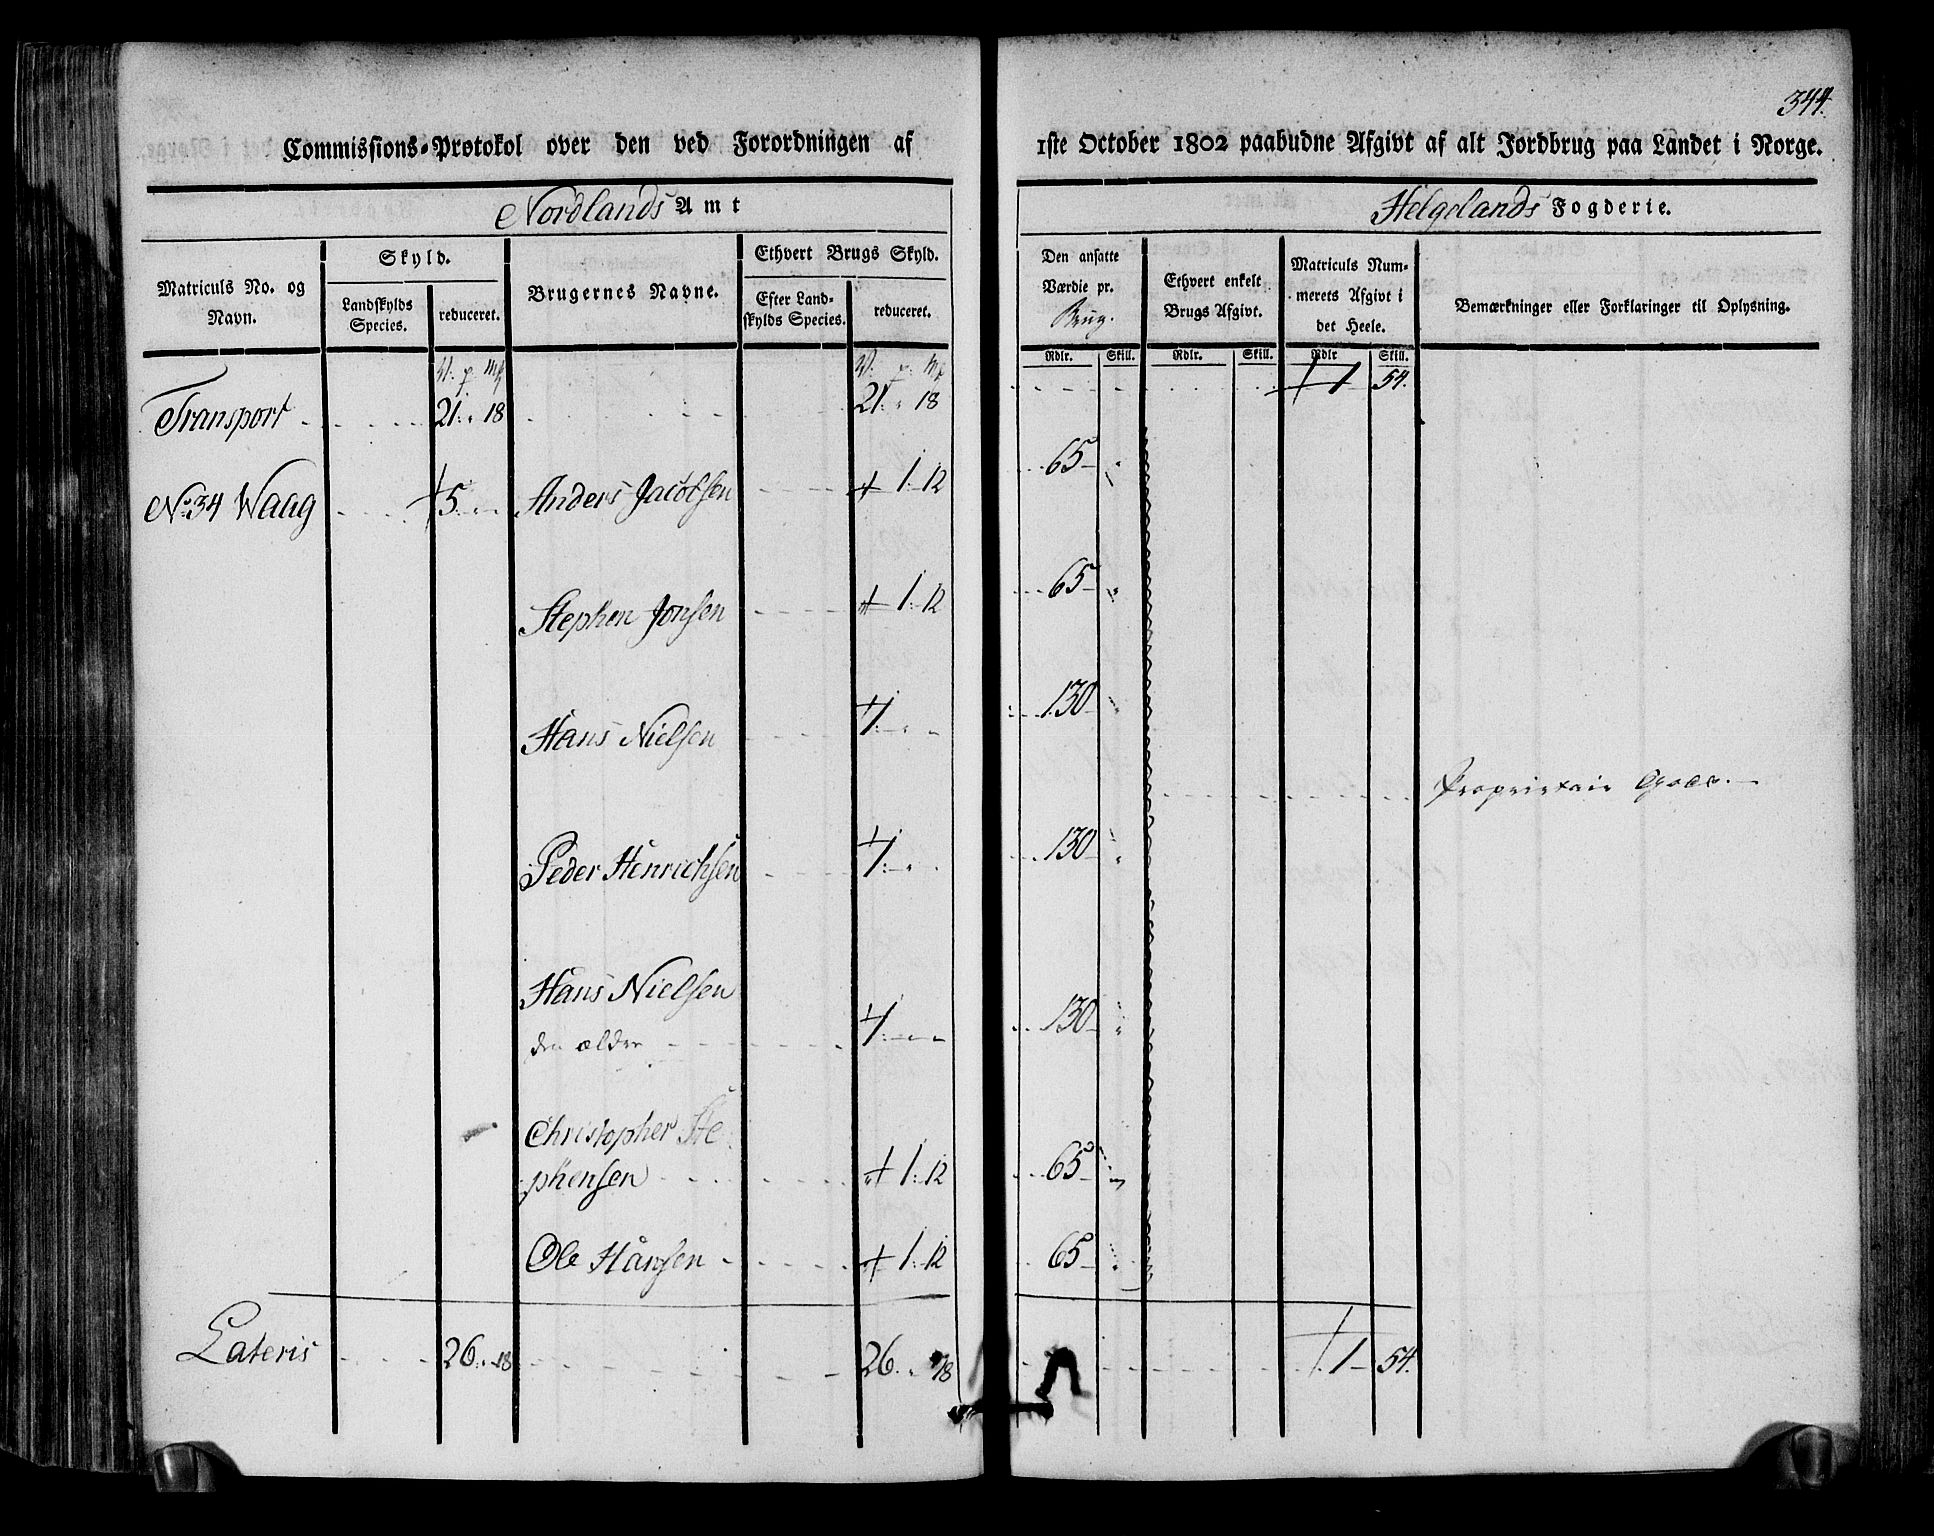 344.
Commissions-Protokol over den ved Forordningen af 1ste October 1802 paabudne Afgivt af alt Jordbrug paa Landet i Norge.
Nordlands Amt Helgelands Fogderie.
Matriculs No. og Navn.
Skyld.
Landskylds Species.
reduceret.
Brugernes Navne.
Ethvert Brugs Skyld.
Efter Landskylds Species.
reduceret.
Den ansatte Værdie pr. Brug.
Ethvert enkelt Brugs Afgivt.
Matriculs Nummerets Afgivt i det Heele.
Bemærkninger eller Forklaringer til Oplysning.
W. p. Mk W. p. Mk Rdlr. Skill. Rdlr. Skill. Rdlr Skill.
Transport 21. " 18 21. " 18 1 54.
No. 34 Waag 5 Anders Jacobsen 1. 12 65
Stephen Jonsen 1. 12 65
Hans Nielsen 1. 130
Proprietair Gods.
Peder Henrichsen 1. 130
Hans Nielsen
den ældre 1. 130
Christopher Ste
phensen 1. 12 65
Ole Hansen 1. 12 65
Lateris 26. " 18 26. " 18 1 54.